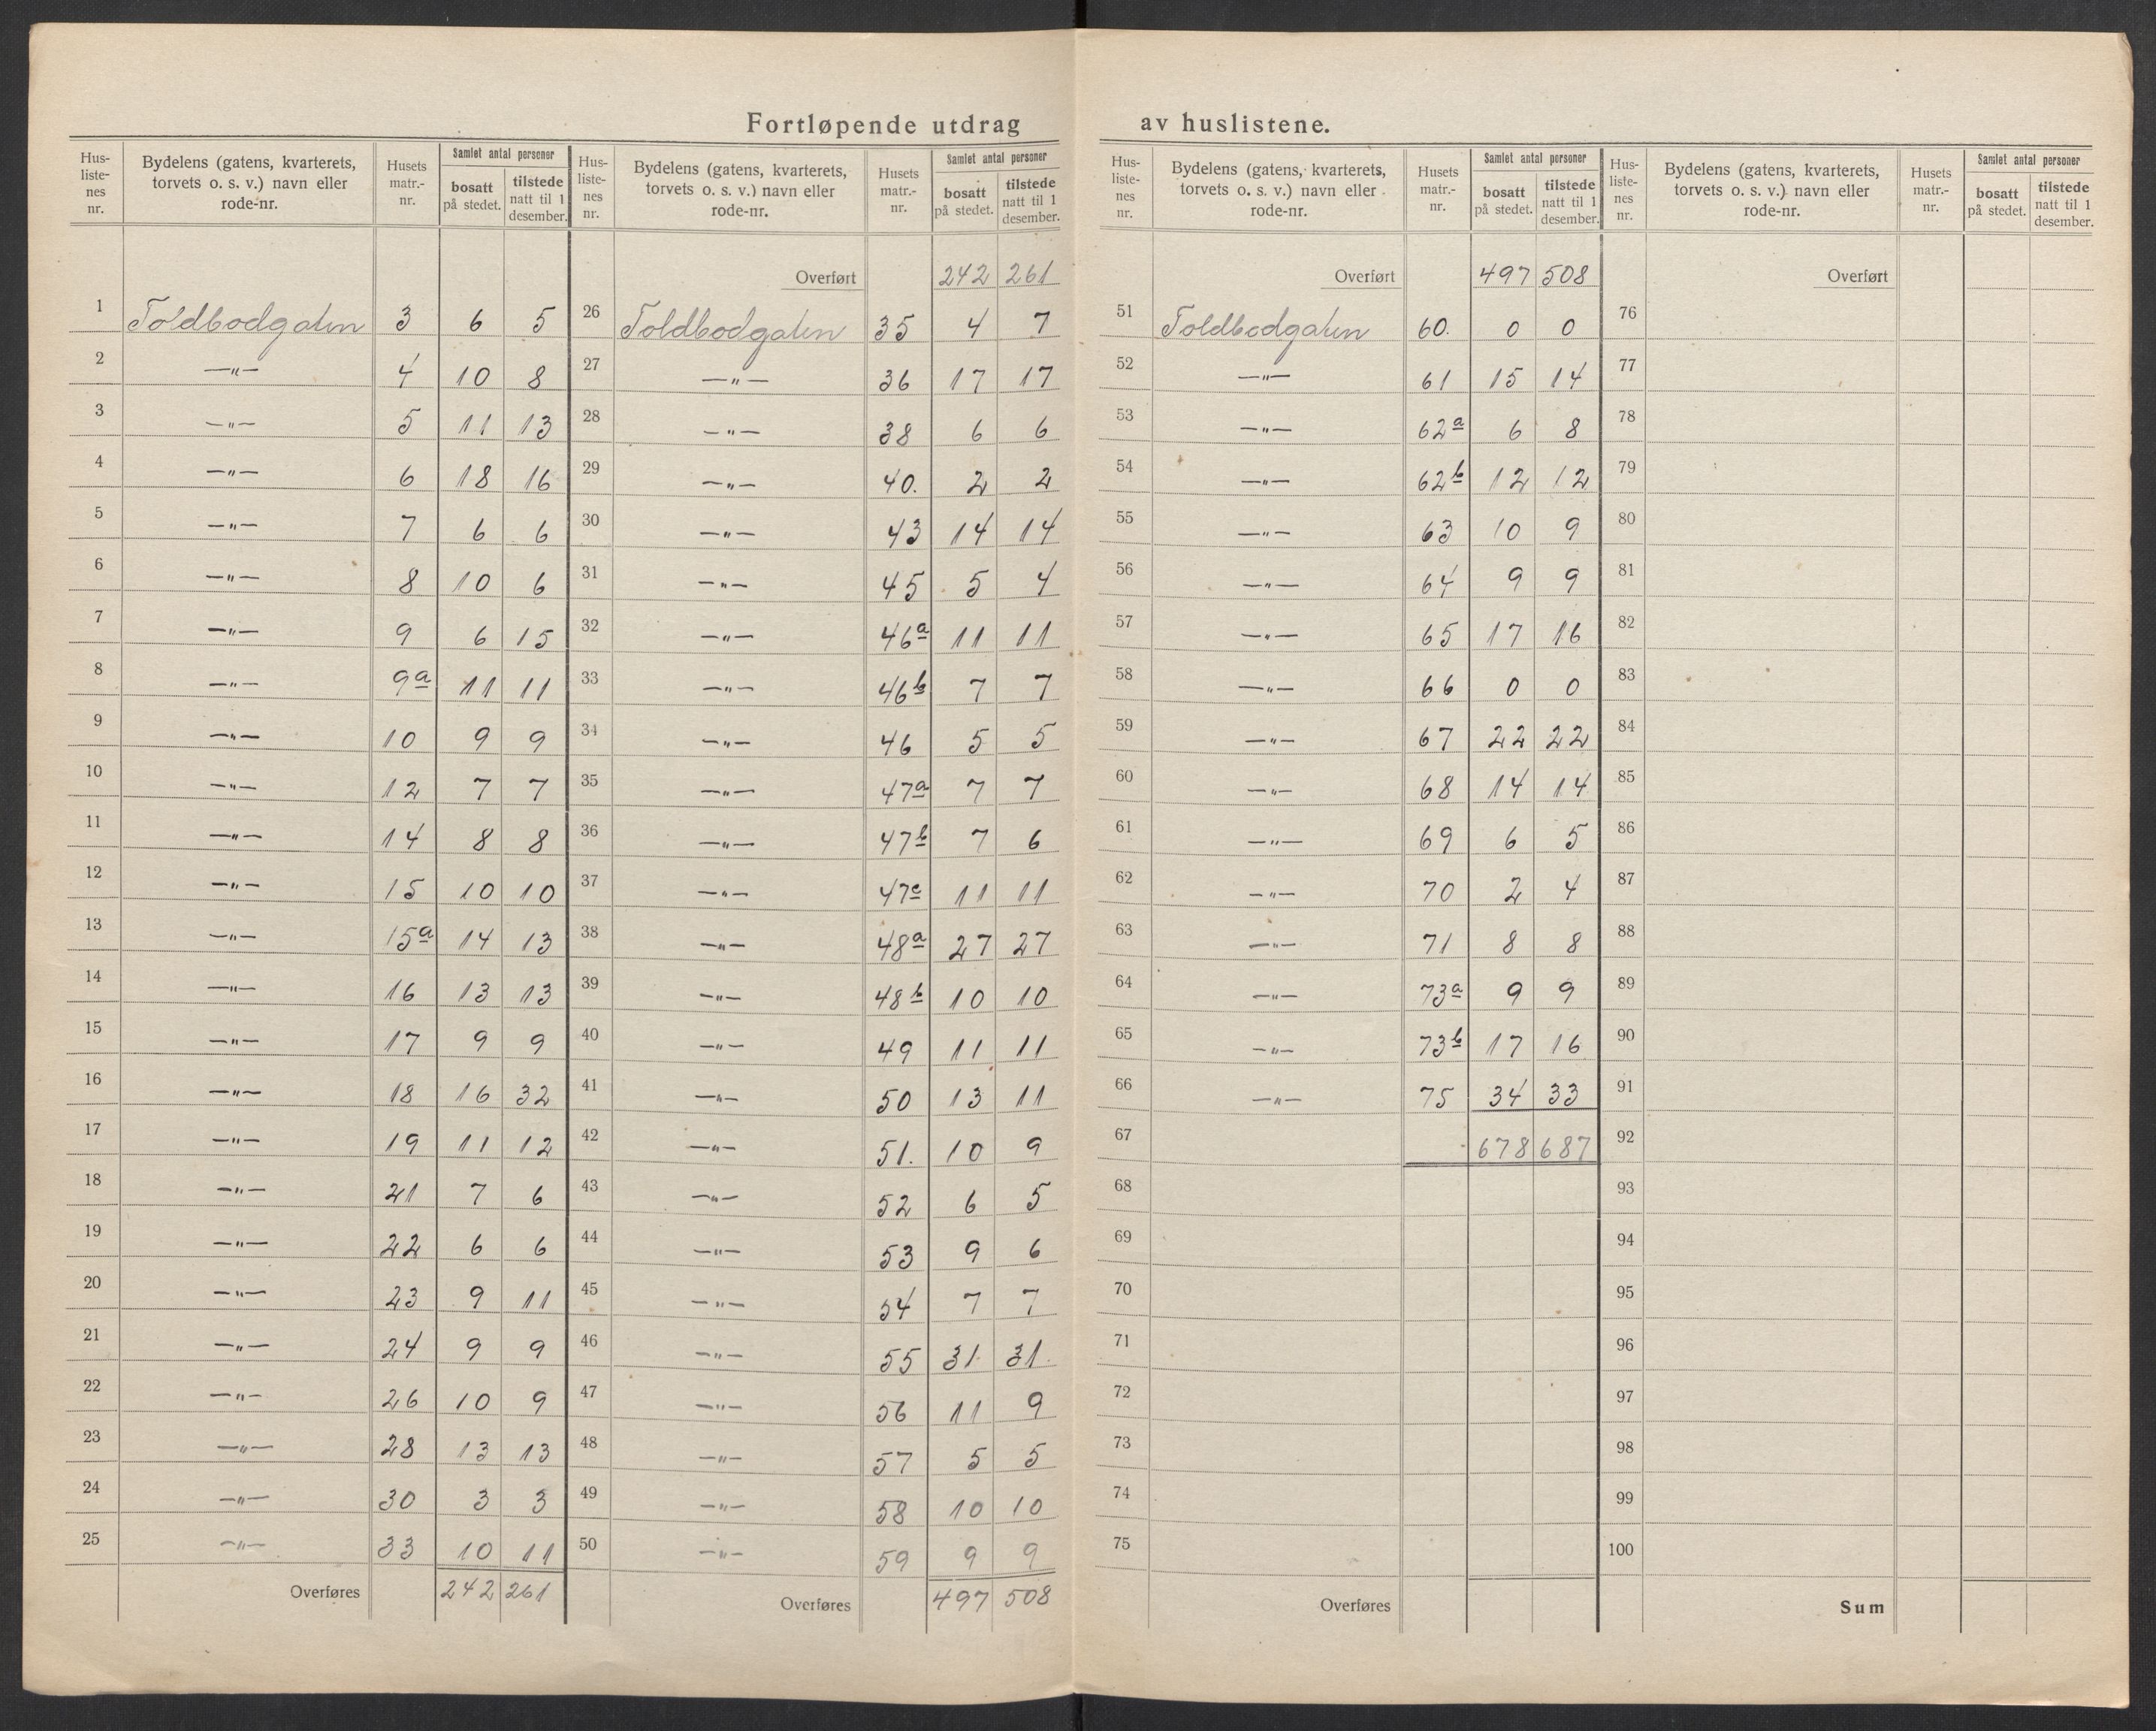 Fortløpende utdrag av huslistene.
Hus-listenes nr. | Bydelens (gatens, kvarterets, torvets o. s. v.) navn eller rode-nr. | Husets matr.-nr. | Samlet antal personer: bosatt på stedet. | tilstede natt til 1 desember.
1 Toldbodgaten 3 6 5
2 —"— 4 10 8
3 —"— 5 11 13
4 —"— 6 18 16
5 —"— 7 6 6
6 —"— 8 10 6
7 —"— 9 6 15
8 —"— 9a 11 11
9 —"— 10 9 9
10 —"— 12 7 7
11 —"— 14 8 8
12 —"— 15 10 10
13 —"— 15a 14 13
14 —"— 16 13 13
15 —"— 17 9 9
16 —"— 18 16 32
17 —"— 19 11 12
18 —"— 21 7 6
19 —"— 22 6 6
20 —"— 23 9 11
21 —"— 24 9 9
22 —"— 26 10 9
23 —"— 28 13 13
24 —"— 30 3 3
25 —"— 33 10 11
Overføres 242 261
Hus-listenes nr. | Bydelens (gatens, kvarterets, torvets o. s. v.) navn eller rode-nr. | Husets matr.-nr. | Samlet antal personer: bosatt på stedet. | tilstede natt til 1 desember.
Overført 242 261
26 Toldbodgaten 35 4 7
27 —"— 36 17 17
28 —"— 38 6 6
29 —"— 40. 2 2
30 —"— 43 14 14
31 —"— 45 5 4
32 —"— 46a 11 11
33 —"— 46b 7 7
34 —"— 46 5 5
35 —"— 47a 7 7
36 —"— 47b 7 6
37 —"— 47c 11 11
38 —"— 48a 27 27
39 —"— 48b 10 10
40 —"— 49 11 11
41 —"— 50 13 11
42 —"— 51. 10 9
43 —"— 52 6 5
44 —"— 53 9 6
45 —"— 54 7 7
46 —"— 55 31. 31.
47 —"— 56 11 9
48 —"— 57 5 5
49 —"— 58 10 10
50 —"— 59 9 9
Overføres 497 508
Hus-listenes nr. | Bydelens (gatens, kvarterets, torvets o. s. v.) navn eller rode-nr. | Husets matr.-nr. | Samlet antal personer: bosatt på stedet. | tilstede natt til 1 desember.
Overført 497 508
51 Toldbodgaten 60. 0 0
52 —"— 61 15 14
53 —"— 62a 6 8
54 —"— 62b 12 12
55 —"— 63 10 9
56 —"— 64 9 9
57 —"— 65 17 16
58 —"— 66 0 0
59 —"— 67 22 22
60 —"— 68 14 14
61 —"— 69 6 5
62 —"— 70 2 4
63 —"— 71 8 8
64 —"— 73a 9 9
65 —"— 73b 17 16
66 —"— 75 34 33
67 678 687
68
69
70
71
72
73
74
75
Overføres
Hus-listenes nr. | Bydelens (gatens, kvarterets, torvets o. s. v.) navn eller rode-nr. | Husets matr.-nr. | Samlet antal personer: bosatt på stedet. | tilstede natt til 1 desember.
Overført
76
77
78
79
80
81
82
83
84
85
86
87
88
89
90
91
92
93
94
95
96
97
98
99
100
Sum